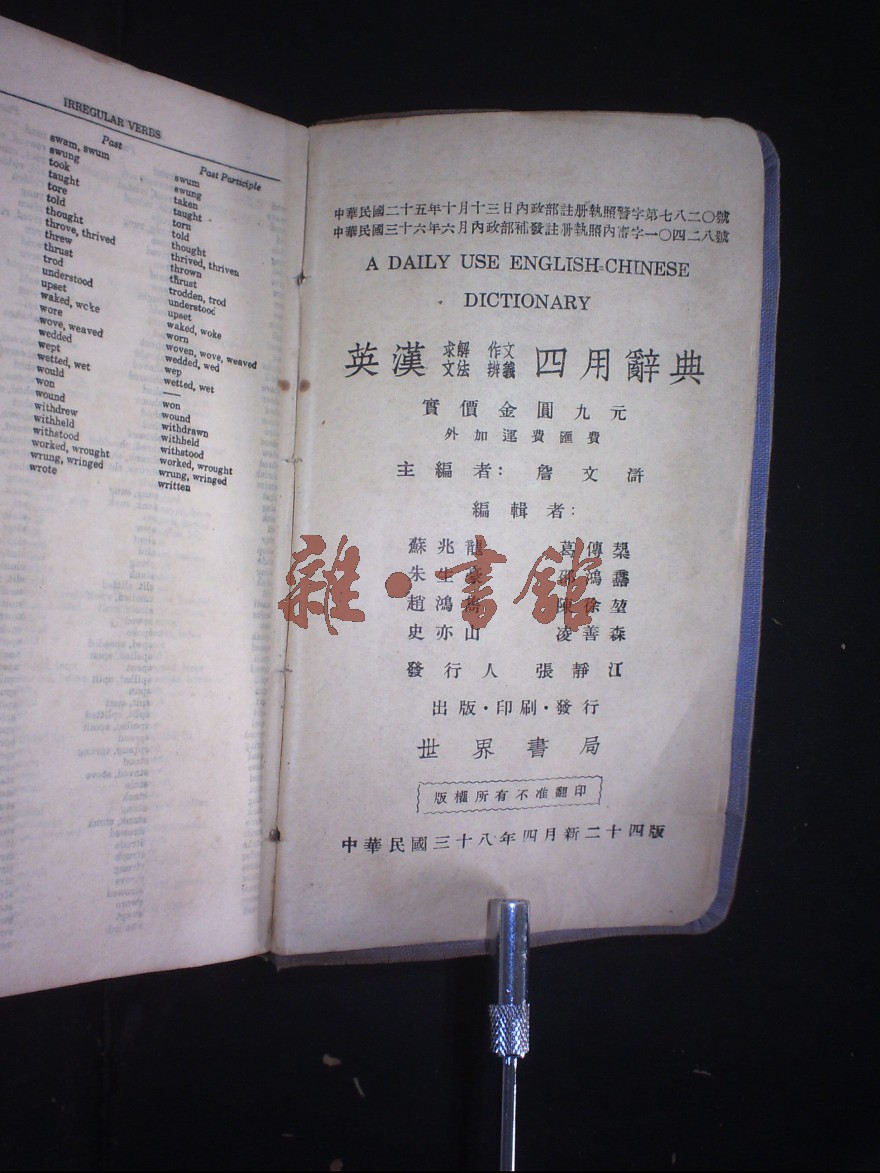 IRREGULAR VERBS
Past Past Participle
swam, swum swum
swung swung
took taken
taught taught
tore torn
told told
thought thought
throve, thrived thrived, thriven
threw thrown
thrust thrust
trod trodden, trod
understood understood
upset upset
waked, woke waked, woke
wore worn
wove, weaved woven, wove, weaved
wedded wedded, wed
wept wep
wetted, wet wetted, wet
would —
won won
wound wound
withdrew withdrawn
withheld withheld
withstood withstood
worked, wrought worked, wrought
wrung, wringed wrung, wringed
wrote written
中華民國二十五年十月十三日內政部註册執照警字第七八二〇號
中華民國三十六年六月內政部補發註册執照內審字一〇四二八號
A DAILY USE ENGLISH-CHINESE
DICTIONARY
英漢 求解 作文 文法 辨義 四用辭典
實價金圓九元
外加運費匯費
主編者: 詹文滸
編輯者:
蘇兆龍 葛傳槼
朱生豪 邵鴻馫
趙鴻雋 陳徐堃
史亦山 凌善森
發行人 張靜江
出版·印刷·發行
世界書局
版權所有不准翻印
中華民國三十八年四月新二十四版
雜·書館